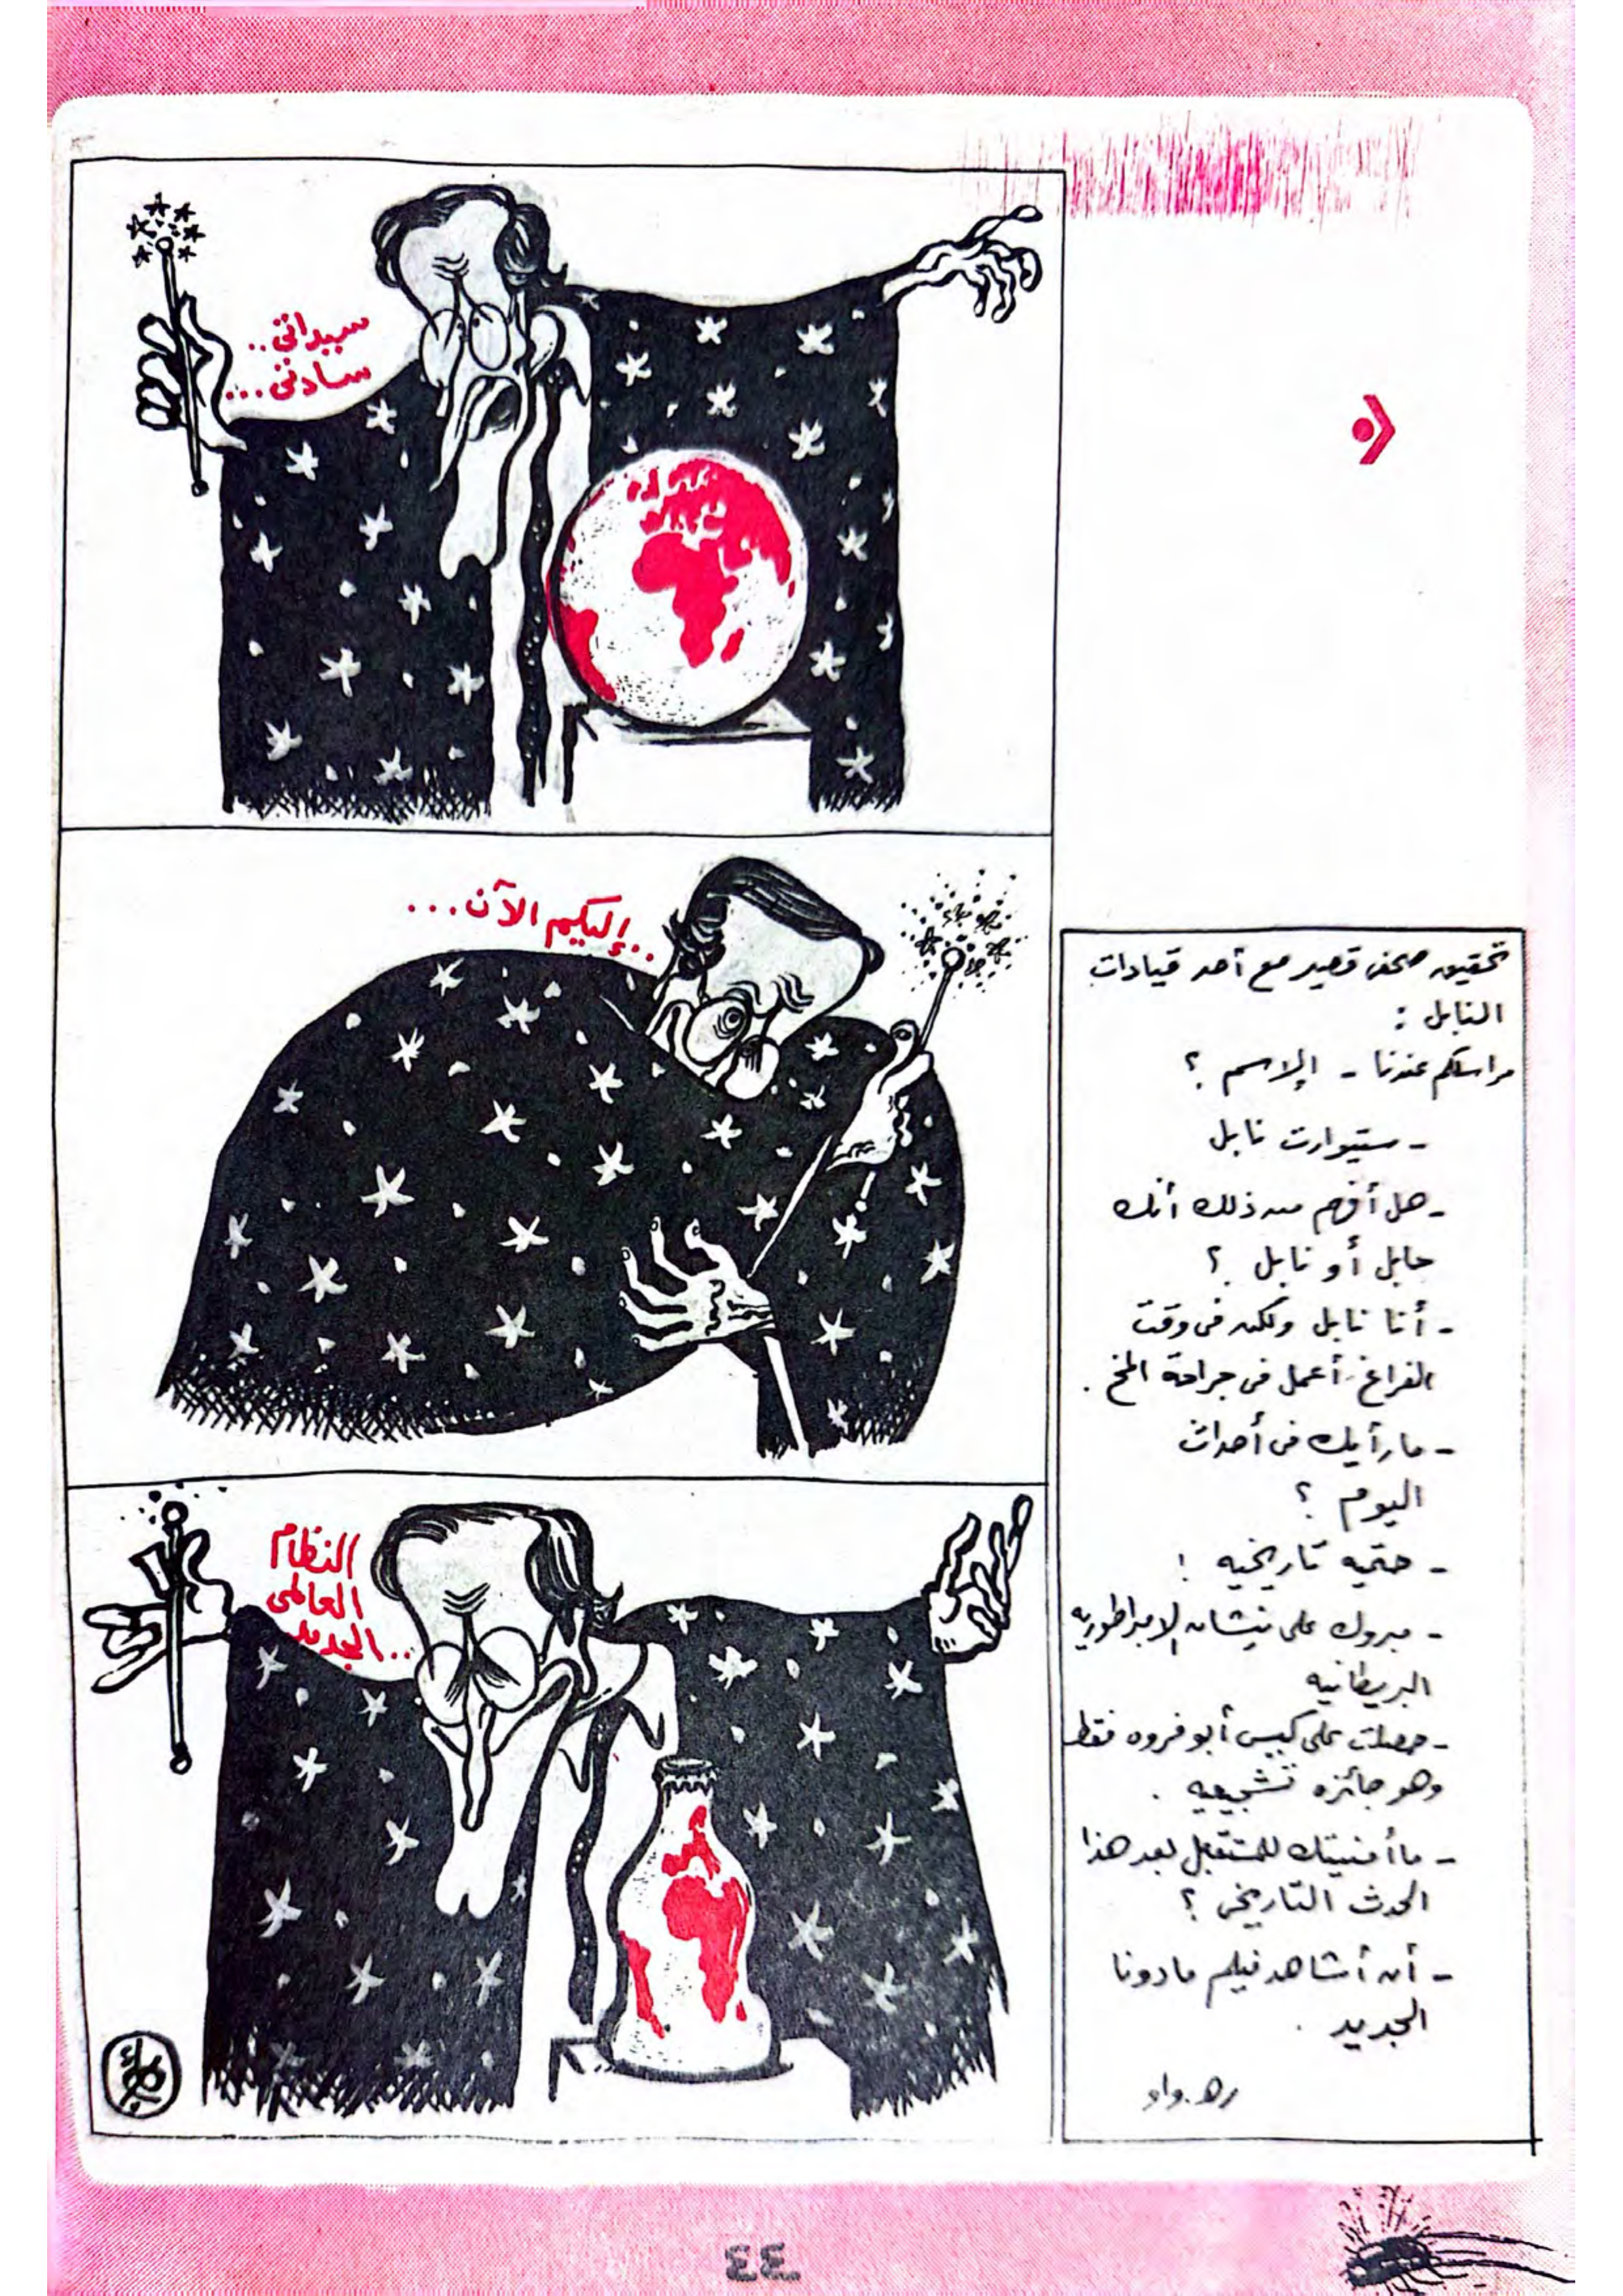 سيداتى..
سادتى...
..إليكم الآن...
النظام
العالمى
الجديد..
تحقيق صحفى قصير مع أحد قيادات
النابل :
مراسلكم عندنا - إلاسم ؟
- ستيوارت نابل
- هل أفهم من ذلك أنك
حابل أو نابل ؟
- أنا نابل ولكن فى وقت
الفراغ أعمل فى جراحة المخ .
- ما رأيك فى أحداث
اليوم ؟
- حتميه تاريخيه !
- مبروك على نيشان الامبراطوريه
البريطانيه
- حصلت على كيس أبو فروه فقط
وهو جائزه تشجيعيه .
- ما أمنيتك للمستقبل بعد هذا
الحدث التاريخى ؟
- أن أشاهد فيلم مادونا
الجديد .
٤٤